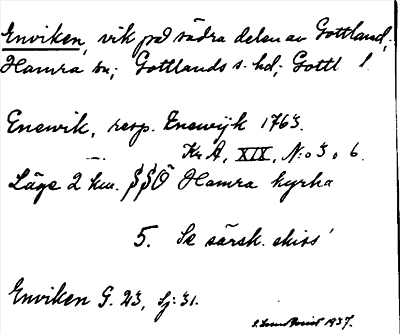 Enviken, vik på södra delen av Gottland;
Hamra sn; Gottlands s. hd; Gottl l.
Enewik, resp. Enewijk 1763.
Kr A, XIX, N:o 3, o 6.
Läge 2 km. SSÖ Hamra kyrka
5. Se särsk. skiss!
Enviken G. 23, Lj: 31.
1937.